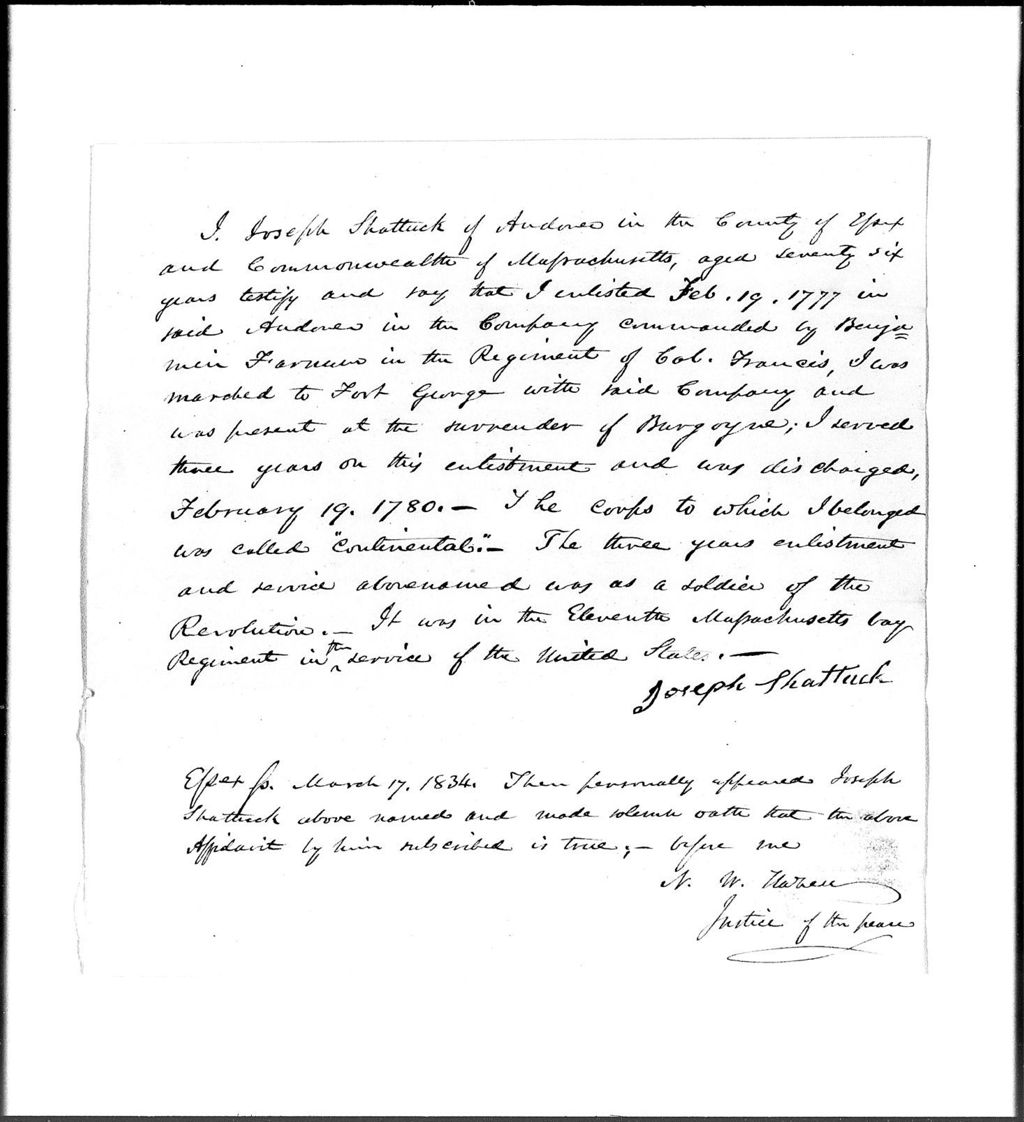 I. Joseph Shattuck of Andover in the County of Essex
and Commonwealth of Massachusetts, aged seventy six
years testify and say that I enlisted Feb. 19. 1777 in
said Andover in the Company commanded by Benja=
min Farnum in the Regiment of Col. Francis, I was
marched to Fort George with said Company and
was present at the surrender of Burgoyne; I served
three years on this enlistment and was discharged,
February 19. 1780. — The corps to which I belonged
was called "Continental". — The three years enlistment
and service abovenamed was as a soldier of the
Revolution. — It was in the Eleventh Massachusetts bay
Regiment in the service of the United States. —
Joseph Shattuck
Essex ss. March 17, 1834. Then personally appeared Joseph
Shattuck above named and made solemn oath that the above
Affidavit by him subscribed is true; — before me
N. W. Hazen
Justice of the peace